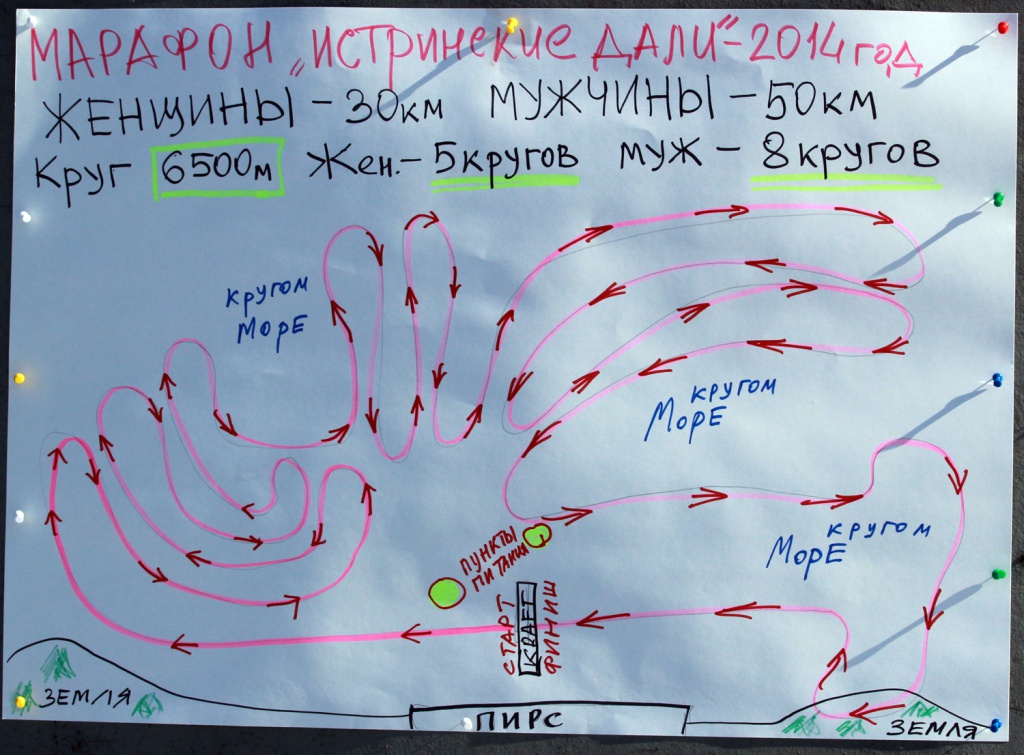 МАРАФОН „ИСТРИНСКИЕ ДАЛИ" - 2014 год
ЖЕНЩИНЫ - 30км МУЖЧИНЫ - 50км
Круг 6500м Жен. - 5 кругов муж - 8 кругов
кругом
МорЕ
кругом
МорЕ
кругом
МорЕ
ПУНКТЫ
ПИТАНИЯ
СТАРТ
CRAFT
ФИНИШ
ЗЕМЛЯ
ПИРС
ЗЕМЛЯ